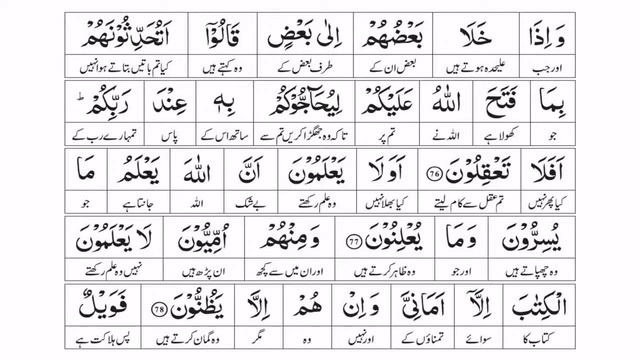 وَ اِذَا خَلَا بَعْضُهُمْ اِلٰى بَعْضٍ قَالُوْٓا اَتُحَدِّثُوْنَهُمْ
اور جب علیحدہ ہوتے ہیں بعض ان کے طرف بعض کے وہ کہتے ہیں کیا تم باتیں بتاتے ہو انہیں
بِمَا فَتَحَ اللّٰهُ عَلَيْكُمْ لِيُحَآجُّوْكُمْ بِهٖ عِنْدَ رَبِّكُمْ ؕ
جو کھولا ہے اللہ نے تم پر تاکہ وہ جھگڑا کریں تم سے ساتھ اس کے پاس تمہارے رب کے
اَفَلَا تَعْقِلُوْنَ 76 اَوَ لَا يَعْلَمُوْنَ اَنَّ اللّٰهَ يَعْلَمُ مَا
کیا پھر نہیں تم عقل سے کام لیتے کیا بھلا نہیں وہ علم رکھتے بے شک اللہ جانتا ہے جو
يُسِرُّوْنَ وَمَا يُعْلِنُوْنَ 77 وَمِنْهُمْ اُمِّيُّوْنَ لَا يَعْلَمُوْنَ
وہ چھپاتے ہیں اور جو وہ ظاہر کرتے ہیں اور ان میں سے کچھ ان پڑھ ہیں نہیں وہ علم رکھتے
الْكِتٰبَ اِلَّآ اَمَانِىَّ وَاِنْ هُمْ اِلَّا يَظُنُّوْنَ 78 فَوَيْلٌ
کتاب کا سوائے تمناؤں کے اور نہیں وہ مگر وہ گمان کرتے ہیں پس ہلاکت ہے